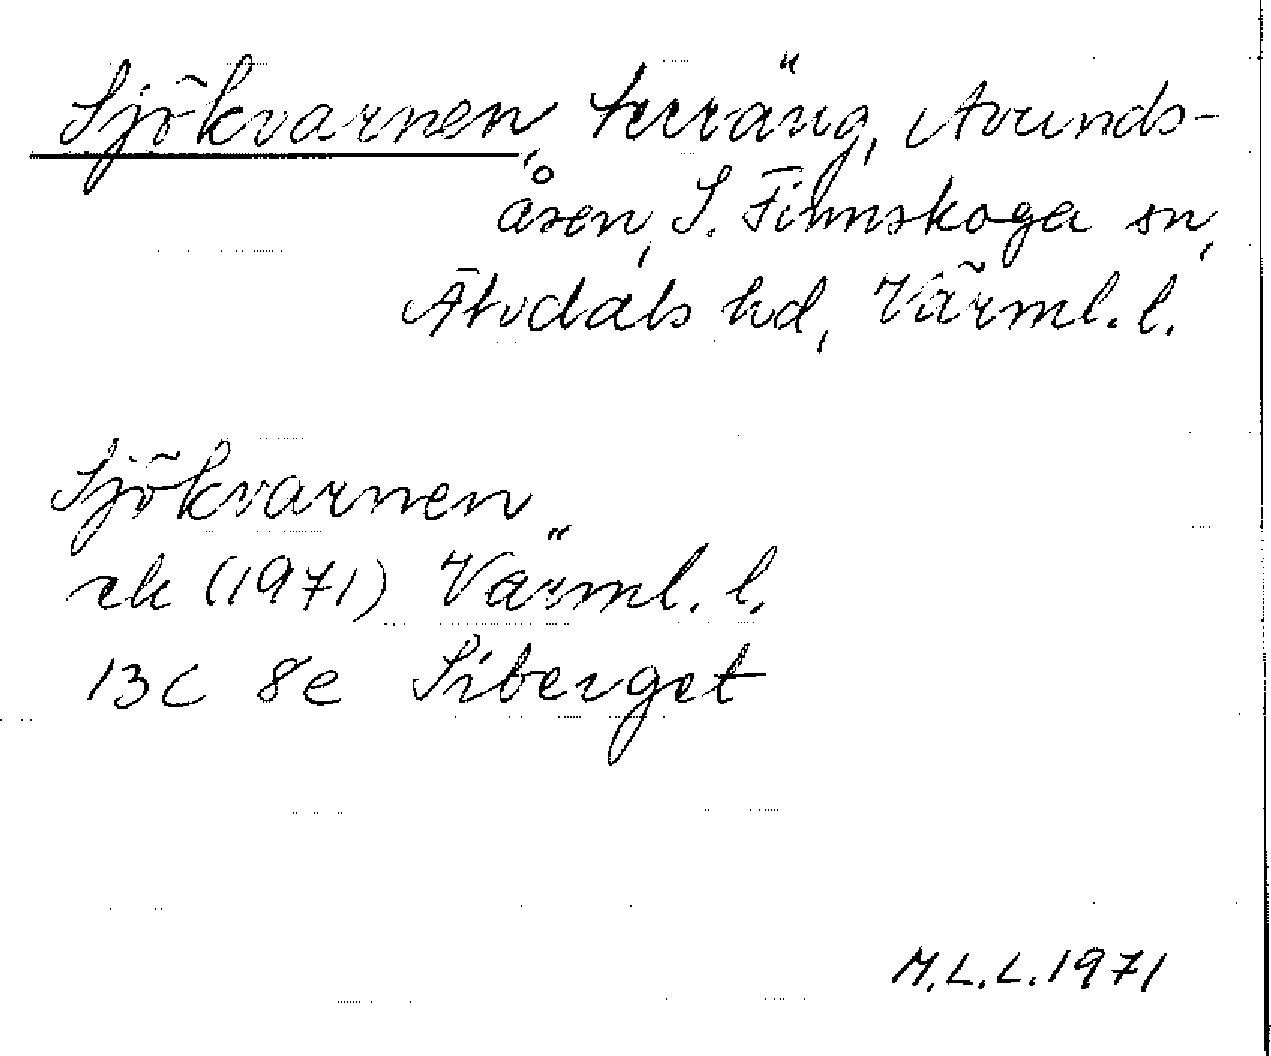 Sjökvarnen, terräng, Avunds-
åsen, S. Finnskoga sn,
Älvdals hd, Värml. l.
Sjökvarnen
ek (1971) Värml. l.
13C 8e Siberget
M.L.L. 1971